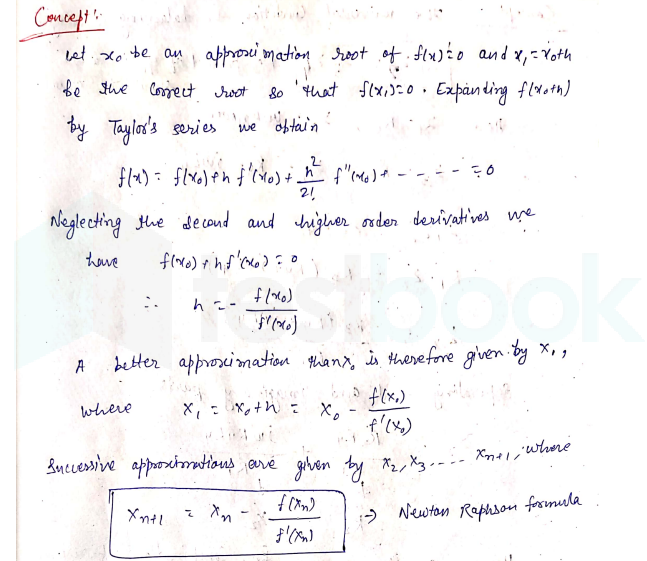 Concept :-
Let x₀ be an approximation root of f(x)=0 and x₁ = x₀+h
be the correct root so that f(x₁)=0 . Expanding f(x₀+h)
by Taylor's series we obtain
f(x) = f(x₀) + h f'(x₀) + h²/2! f''(x₀) + - - - - = 0
Neglecting the second and higher order derivatives we
have f(x₀) + h f'(x₀) = 0
∴ h = - f(x₀)/f'(x₀)
A better approximation than x₀ is therefore given by x₁ ,
where x₁ = x₀+h = x₀ - f(x₀)/f'(x₀)
Successive approximations are given by x₂, x₃ ---- xₙ₊₁, where
xₙ₊₁ = xₙ - f(xₙ)/f'(xₙ) → Newton Raphson formula
testbook